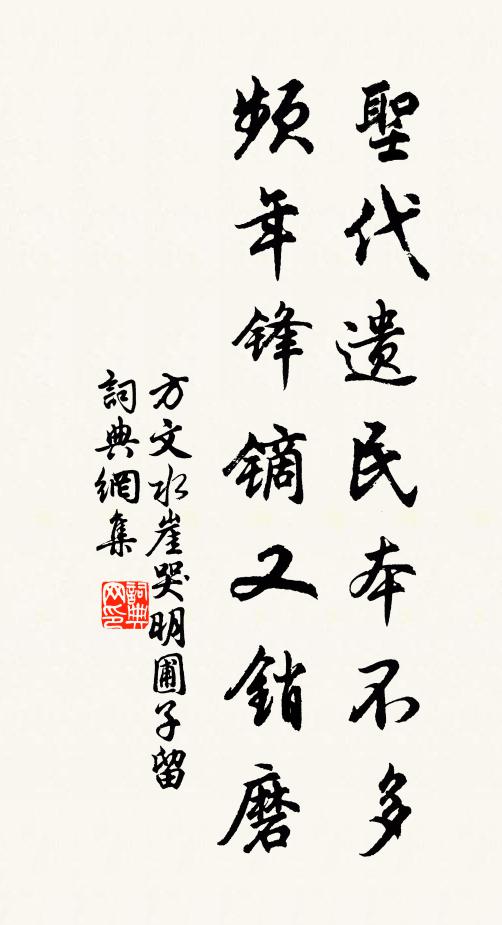 聖代遗民本不多
頻年锋镝又銷磨
方文水崖哭明圃子留
詞典網集
詞典网印